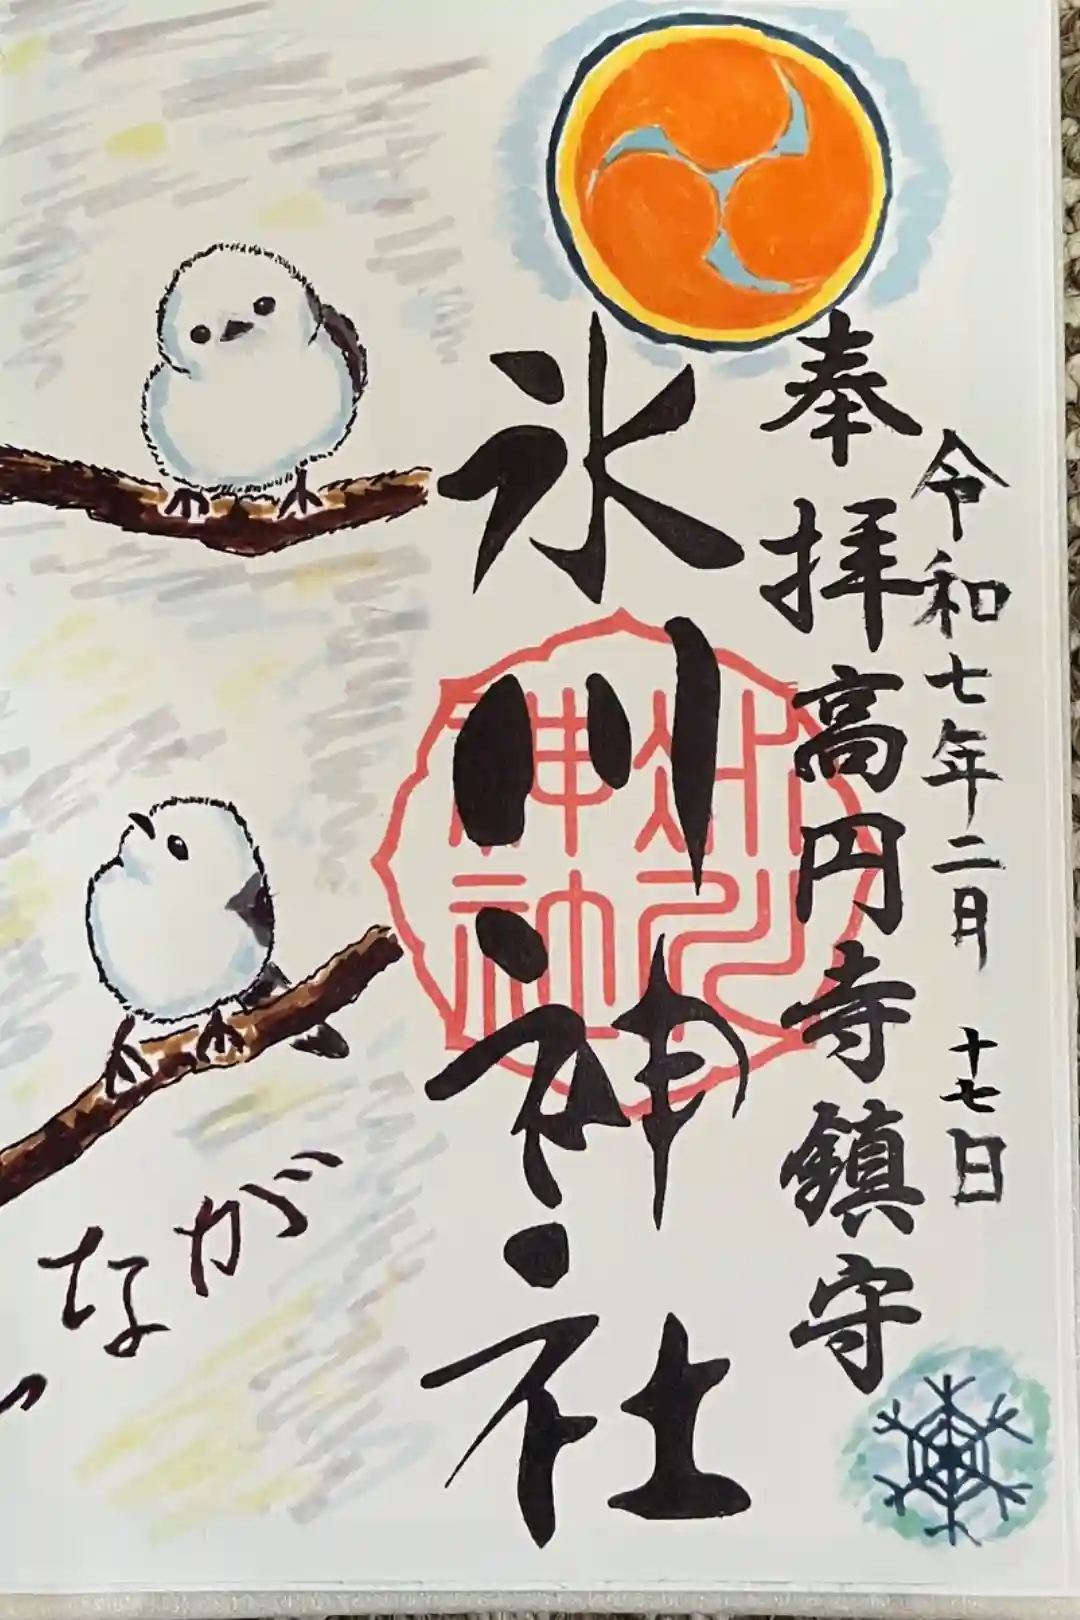 令和七年二月十七日
奉拝高円寺鎮守
氷川神社
氷川神社
なが